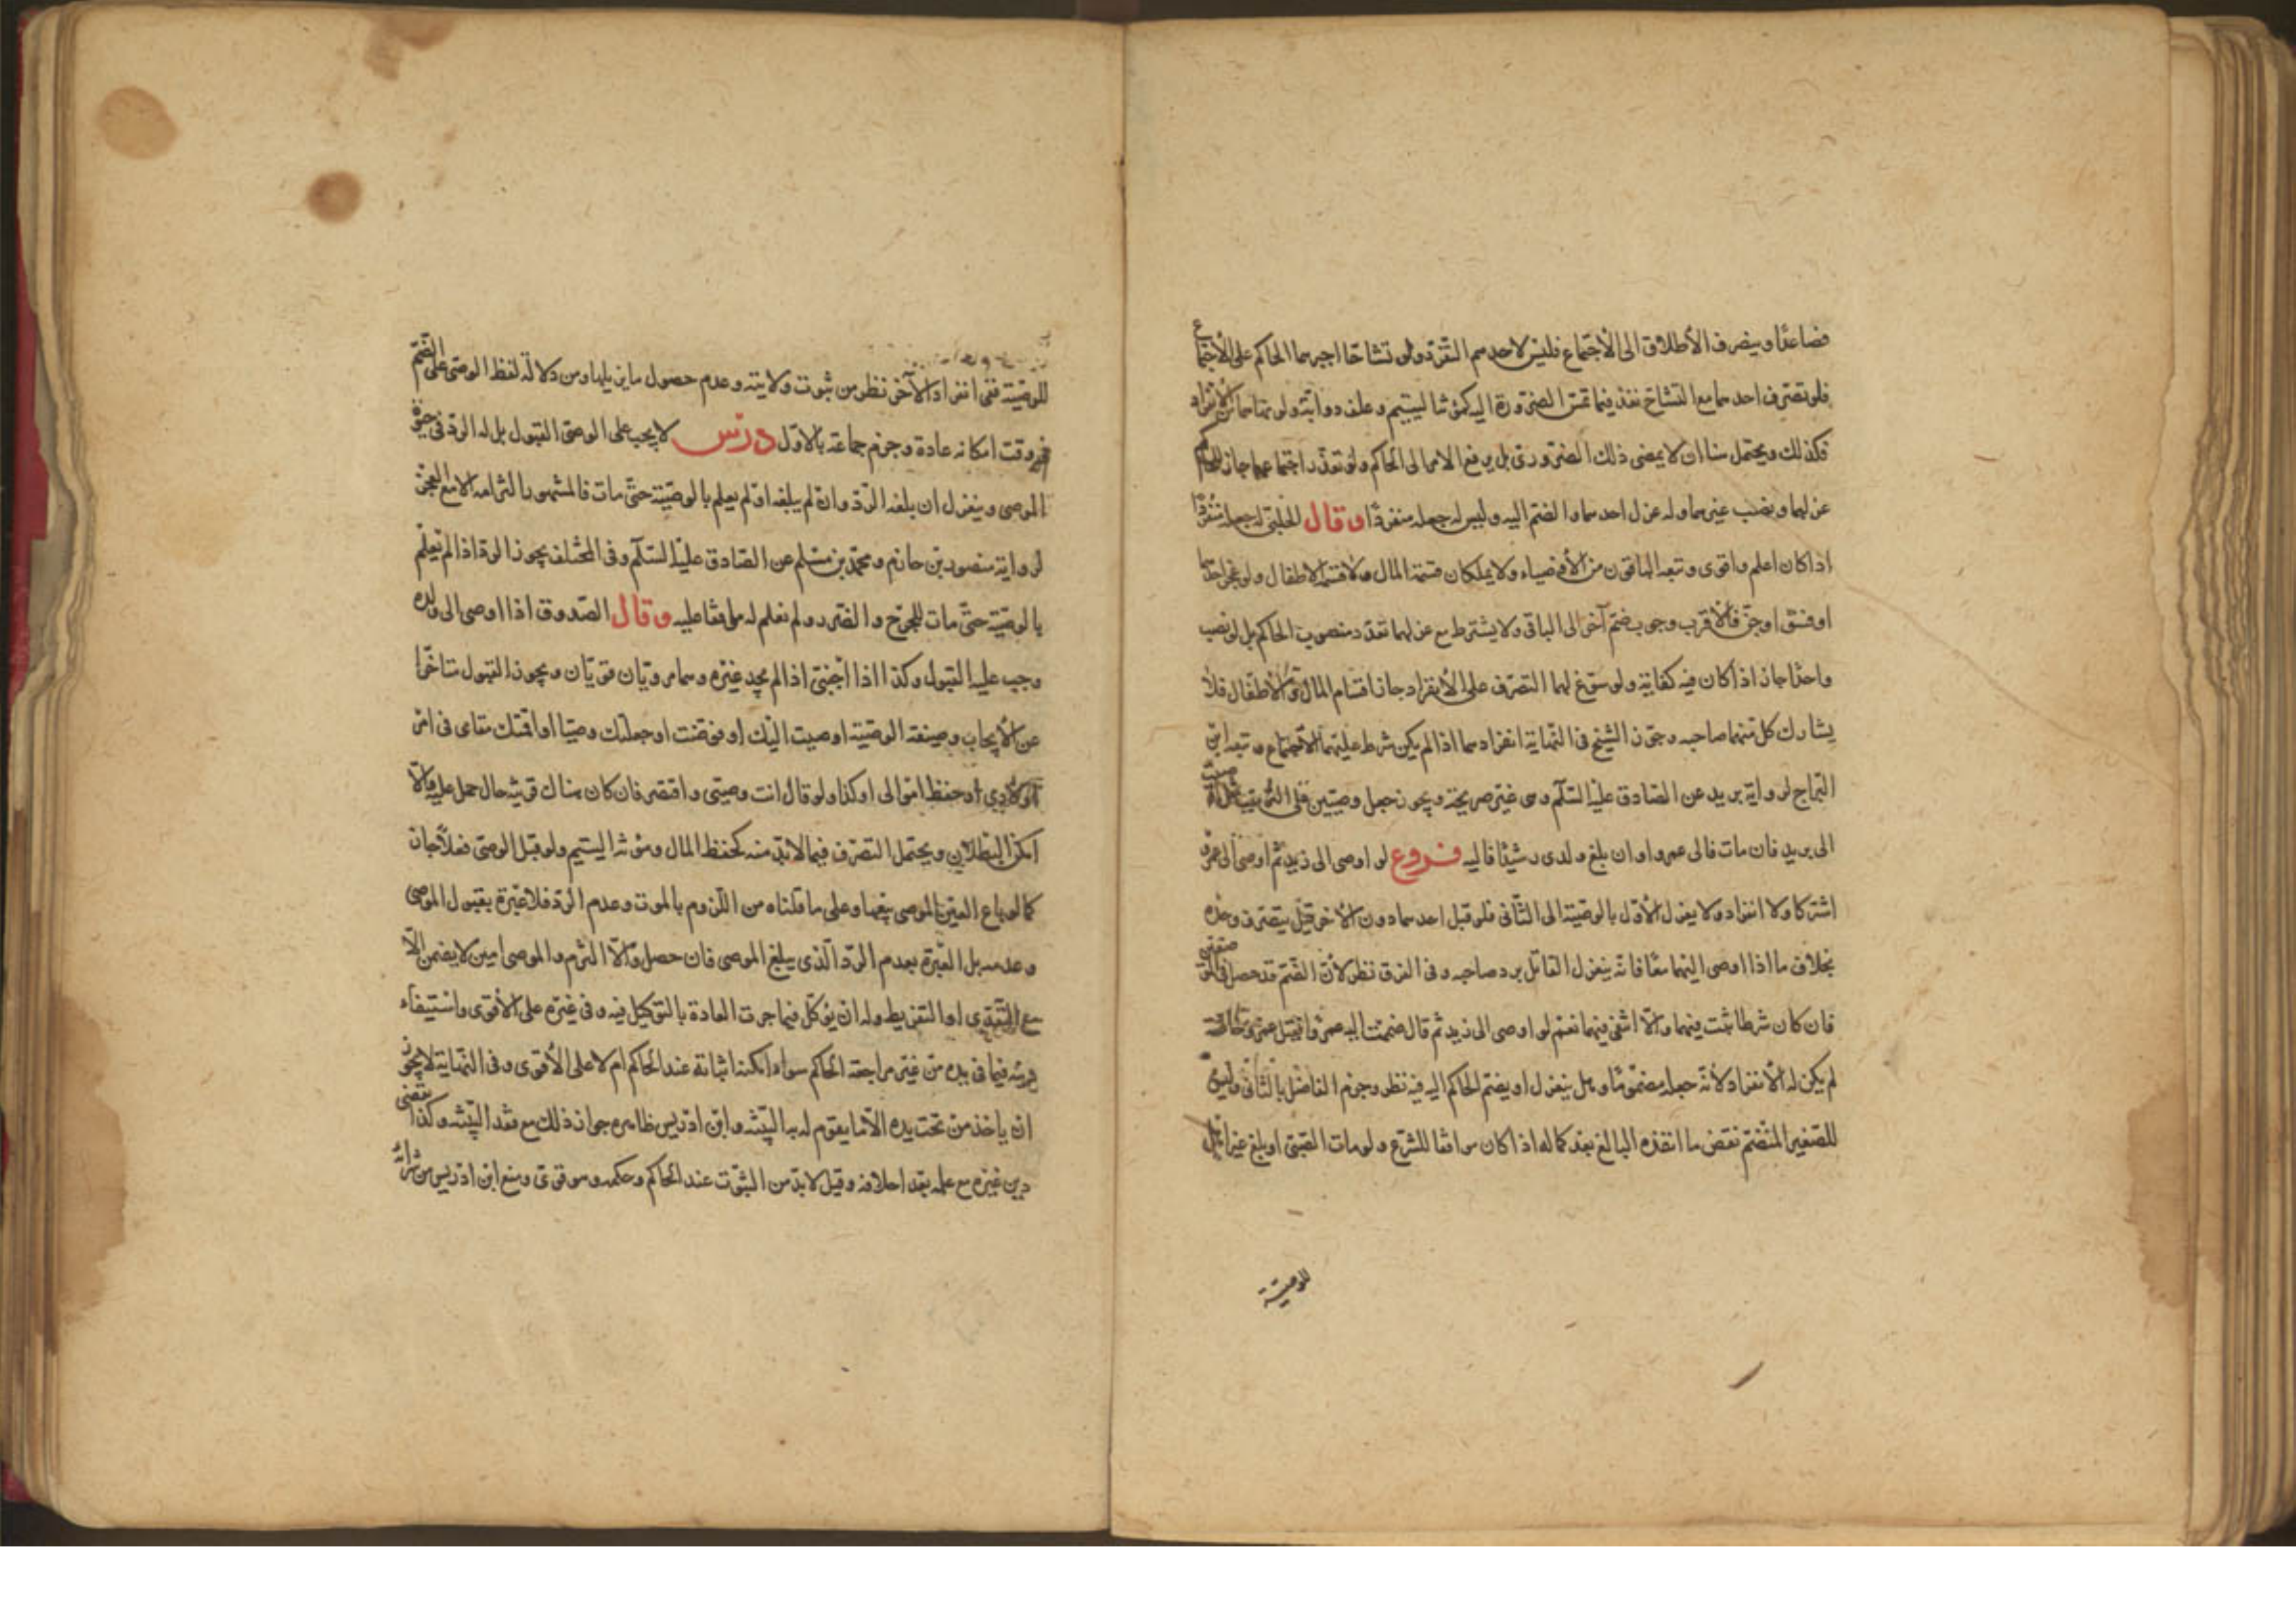 فصاعدا وينصرف الأطلاق الى الأجتماع فليس لاحدهم التفرد ولو تشاحا اجبرهما الحاكم على الأجتماع
فلو تصرف احدهما مع التشاح نفذ فيما تمس الضرورة اليه كمؤنة اليتيم وعلف دوابه ولو نهاهما عن الأنفراد
فكذلك ويحتمل هنا ان لا يمضى ذلك الضرورى بل يرفع الامر الى الحاكم ولو تعذر اجتماعهما جاز للحاكم
عزلهما ونصب غيرهما وله عزل احدهما والضم اليه وليس له جعله منفردا وقال الحلبى له جعله منفردا
اذا كان اعلم واقوى وتبعه الباقون من الأوصياء ولا يملكان قسمة المال ولا قسمة الاطفال ولو عجز احدهما
او فسق او جن فالأقرب وجوب ضم آخر الى الباقى ولا يشترط مع عزلهما تعدد منصوب الحاكم بل لو نصب
واحدا جاز اذا كان فيه كفاية ولو سوغ لهما التصرف على الأنفراد جاز اقتسام المال والأطفال فلا
يشارك كل منهما صاحبه وجوز الشيخ فى النهاية انفرادهما اذا لم يكن شرط عليهما الأجتماع وتبعه ابن
البراج لرواية بريد عن الصادق عليه السلم وهى غير صريحة ويجوز جعل وصيين على الترتيب مثل اوصيت
الى بريد فان مات فالى عمرو او ان بلغ ولدى رشيدا فاليه فروع لو اوصى الى زيد ثم اوصى الى عمرو
اشتركا ولا انفراد ولا يعزل الأول بالوصية الى الثانى فلو قبل احدهما دون الأخر قيل يتصرف وحده
بخلاف ما اذا اوصى اليهما معا فانه ينعزل القابل برد صاحبه وفى الفرق نظر لأن الضم قد حصل فى
فان كان شرطا ثبت فيهما والا انتفى فيهما نعم لو اوصى الى زيد ثم قال ضممت اليه عمروا فقبل عمرو خاصة
لم يكن له الأنفراد لأنه جعله مضموما وهل ينعزل او يضم الحاكم اليه فيه نظر وجزم الفاضل بالثانى وليس
للصغير المنضم نقض ما انفذه البالغ بعد كماله اذا كان موافقا للشرع ولو مات الصبى او بلغ غير اهل
للوصية
للوصية ففى انفراد الآخر نظر من ثبوت ولايته وعدم حصول ما يزيلها ومن دلالة لفظ الموصى على الضم
فى وقت امكانه عادة وجزم جماعة بالاول درس لا يجب على الوصى القبول بل له الرد فى حيوة
الموصى وينعزل ان بلغه الرد وان لم يبلغه او لم يعلم بالوصية حتى مات فالمشهور التزامه الا مع العجز
لرواية منصور بن حازم ومحمد بن مسلم عن الصادق عليه السلم وفى المختلف يجوز الرد اذا لم يعلم
بالوصية حتى مات للحرج والضرر ولم نعلم له موافقا عليه وقال الصدوق اذا اوصى الى ولده
وجب عليه القبول وكذا اذا اجنبى اذا لم يجد غيره وهما مرويان قويان ويجوز القبول متاخرا
عن الأيجاب وصيغة الوصية اوصيت اليك او فوضت او جعلتك وصيا او اقمتك مقامى فى امر
اولادى او حفظ اموالى او كذا ولو قال انت وصيى واقتصر فان كان هناك قرينة حال حمل عليه والا
امكن البطلان ويحتمل التصرف فيما لابد منه كحفظ المال ومؤنة اليتيم ولو قبل الوصى فعلا جاز
كما لو باع العين الموصى ببيعها وعلى ما قلناه من اللزوم بالموت وعدم الرد فلا عبرة بقبول الموصى
وعدمه بل العبرة بعدم الرد الذى يبلغ الموصى فان حصل والا التزم والموصى امين لا يضمن الا
مع التعدى او التفريط وله ان يوكل فيما جرت العادة بالتوكيل فيه وفى غيره على الأقوى واستيفاء
دينه فيما فى يده من غير مراجعة الحاكم سواء امكنه اثباته عند الحاكم ام لا على الأقوى وفى النهاية لا يجوز
ان ياخذ من تحت يده الا ما يقوم له به البينه وابن ادريس ظاهره جواز ذلك مع فقد البينه وكذا يقضى
دين غيره مع علمه بعد احلافه وقيل لابد من الثبوت عند الحاكم وحكمه وهو قوى ومنع ابن ادريس من شرائه